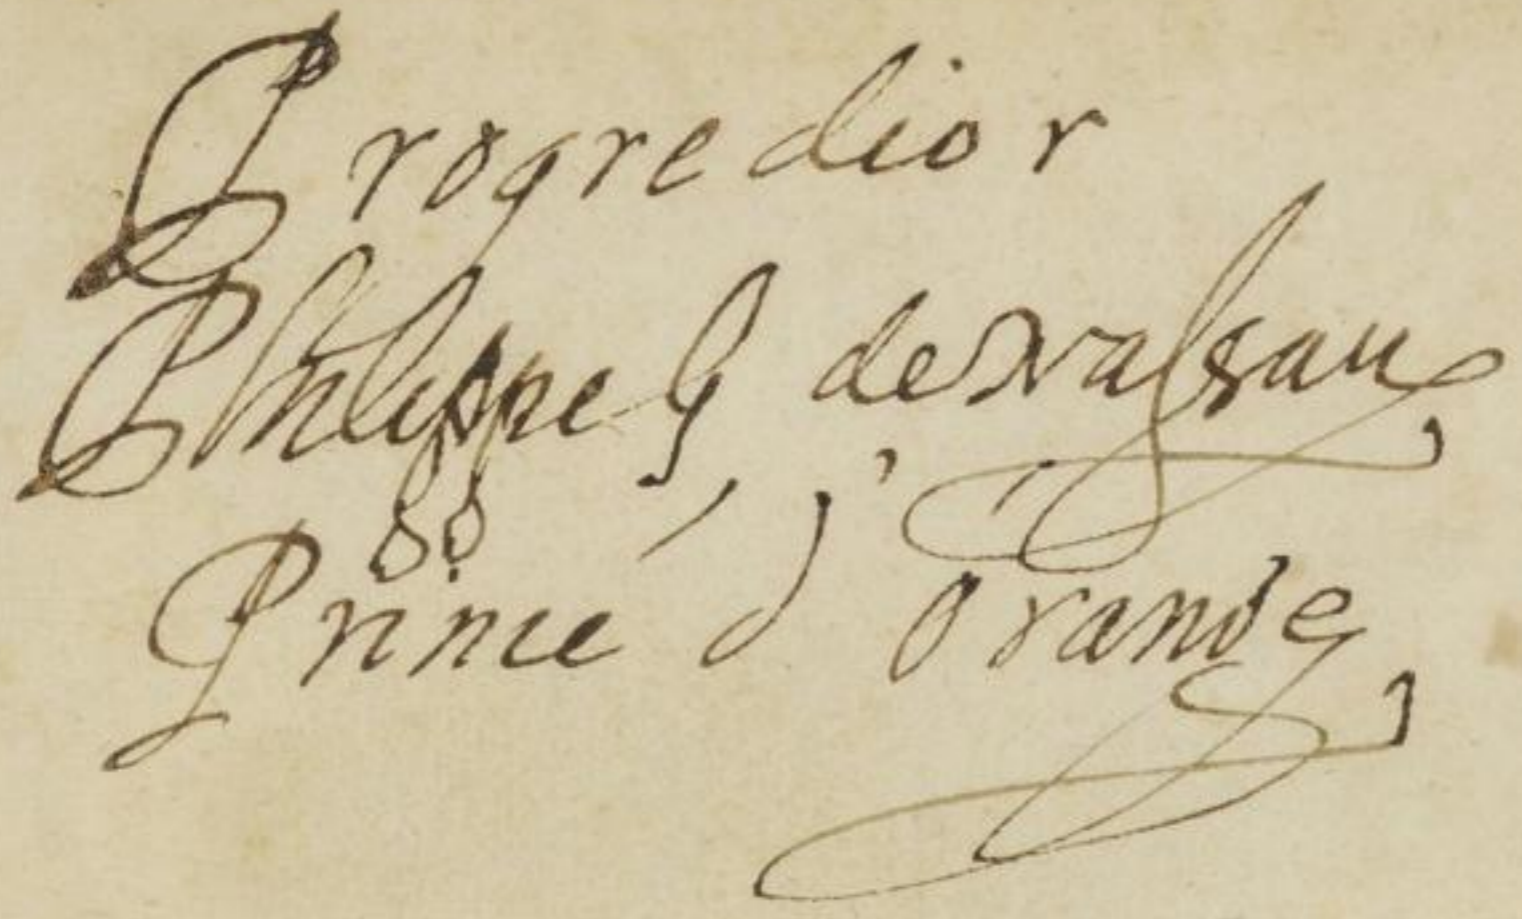 Progredior
Philippe G de Nassau
Prince d'Orange